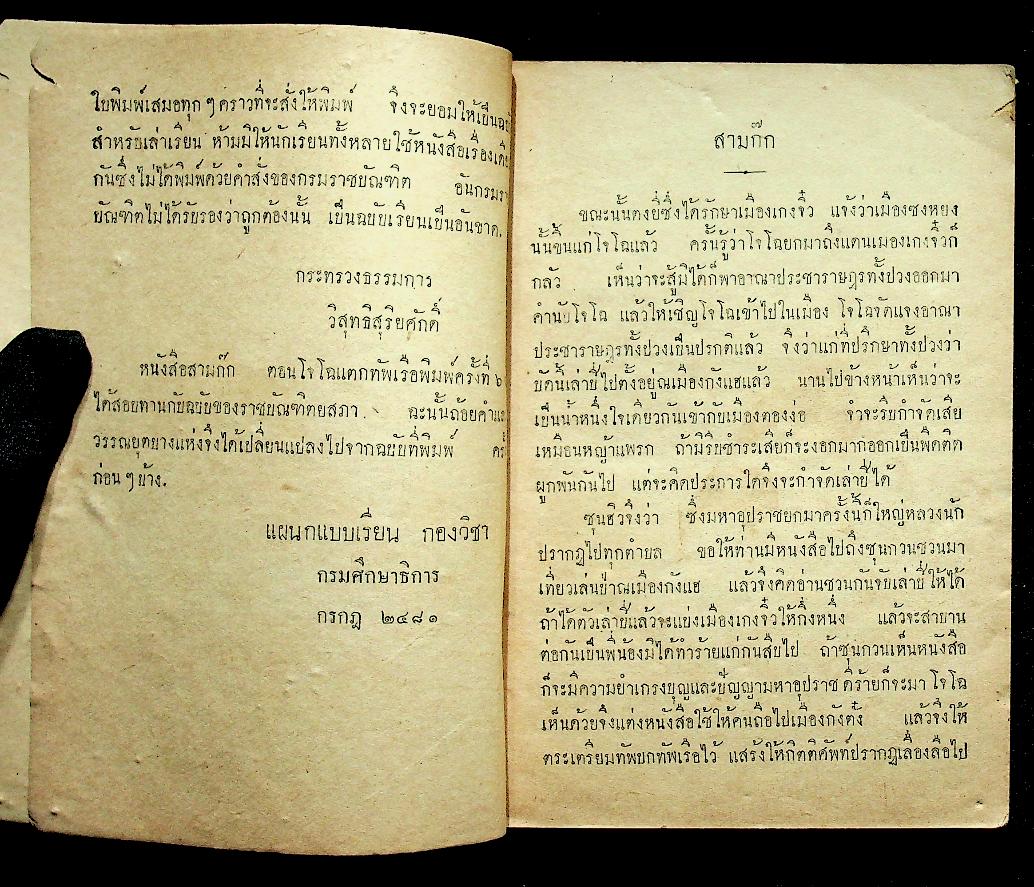 ใบพิมพ์เสมอทุก ๆ คราวที่จะสั่งให้พิมพ์ จึงจะยอมให้เป็น
สำหรับเล่าเรียน ห้ามมิให้นักเรียนทั้งหลายใช้หนังสือเรื่อง
กันซึ่งไม่ได้พิมพ์ด้วยคำสั่งของกรมราชบัณฑิต อันกรม
บัณฑิตไม่ได้รับรองว่าถูกต้องนั้น เป็นฉบับเรียนเป็นอันขาด.
กระทรวงธรรมการ
วิสุทธิสุริยศักดิ์
หนังสือสามก๊ก ตอนโจโฉแตกทัพเรือพิมพ์ครั้งที่ ๖
ได้สอบทานกับฉบับของราชบัณฑิตยสภา ฉะนั้นถ้อยคำและ
วรรณยุตบางแห่งจึงได้เปลี่ยนแปลงไปจากฉบับที่พิมพ์
ก่อน ๆ บ้าง.
แผนกแบบเรียน กองวิชา
กรมศึกษาธิการ
กรกฎ ๒๔๘๑
สามก๊ก
ขณะนั้นตงยี่ซึ่งได้รักษาเมืองเกงจิ๋ว แจ้งว่าเมืองซงหยง
นั้นขึ้นแก่โจโฉแล้ว ครั้นรู้ว่าโจโฉยกมาถึงแดนเมืองเกงจิ๋วก็
กลัว เห็นว่าจะสู้มิได้ก็พาอาณาประชาราษฎรทั้งปวงออกมา
คำนับโจโฉ แล้วให้เชิญโจโฉเข้าไปในเมือง โจโฉจัดแจงอาณา
ประชาราษฎรทั้งปวงเป็นปรกติแล้ว จึงว่าแก่ที่ปรึกษาทั้งปวงว่า
บัดนี้เล่าปี่ไปตั้งอยู่ณเมืองกังแฮแล้ว นานไปข้างหน้าเห็นว่าจะ
เป็นน้ำหนึ่งใจเดียวกันเข้ากับเมืองตองง่อ จำจะรีบกำจัดเสีย
เหมือนหญ้าแพรก ถ้ามิรีบชำระเสียก็จะงอกมากออกเป็นพืดติด
ผูกพันกันไป แต่จะคิดประการใดจึงจะกำจัดเล่าปี่ได้
ซุนฮิวจึงว่า ซึ่งมหาอุปราชยกมาครั้งนี้ก็ใหญ่หลวงนัก
ปรากฏไปทุกตำบล ขอให้ท่านมีหนังสือไปถึงซุนกวนชวนมา
เที่ยวเล่นป่าณเมืองกังแฮ แล้วจึงคิดอ่านชวนกันจับเล่าปี่ให้ได้
ถ้าได้ตัวเล่าปี่แล้วจะแบ่งเมืองเกงจิ๋วให้กึ่งหนึ่ง แล้วจะสาบาน
ต่อกันเป็นพี่น้องมิได้ทำร้ายแก่กันสืบไป ถ้าซุนกวนเห็นหนังสือ
ก็จะมีความยำเกรงบุญและปัญญามหาอุปราช ดีร้ายก็จะมา โจโฉ
เห็นด้วยจึงแต่งหนังสือใช้ให้คนถือไปเมืองกังตั๋ง แล้วจึงให้
ตระเตรียมทัพบกทัพเรือไว้ แสร้งให้กิตติศัพท์ปรากฏเลื่องลือไป